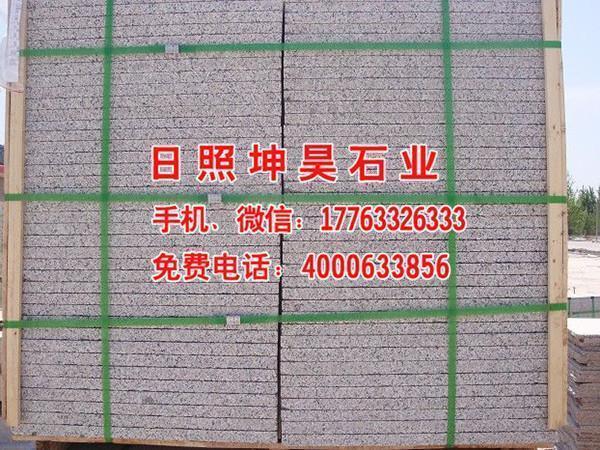 日照坤昊石业
手机、微信：17763326333
免费电话：4000633856